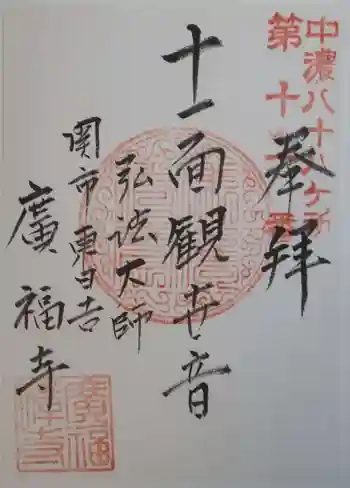 中濃八十八ケ所
第十
奉拝
十一面観世音
弘法大師
関市東日吉
廣福寺
廣福
禅寺